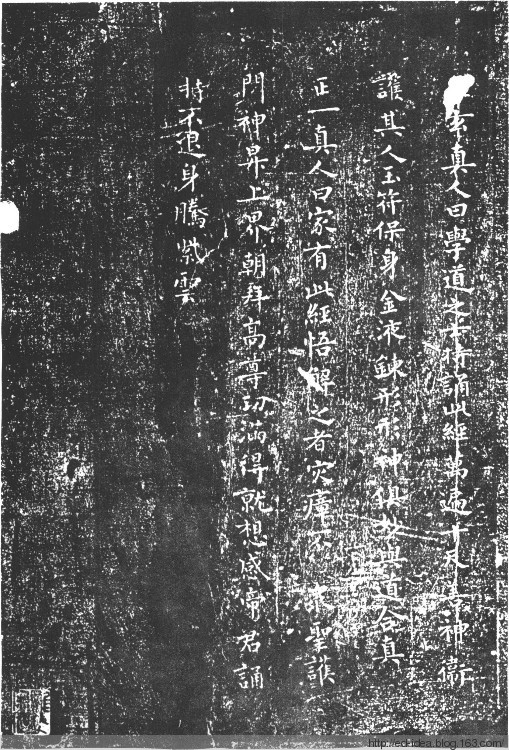 玄真人曰學道之士持誦此經萬遍十天善神衛
護其人玉符保身金液鍊形形神俱妙與道合真
正一真人曰家有此經悟解之者灾障不聖護
門神昇上界朝拜高尊功滿得就想感帝君誦
持不退身騰紫雲
http://ed-idea.blog.163.com/